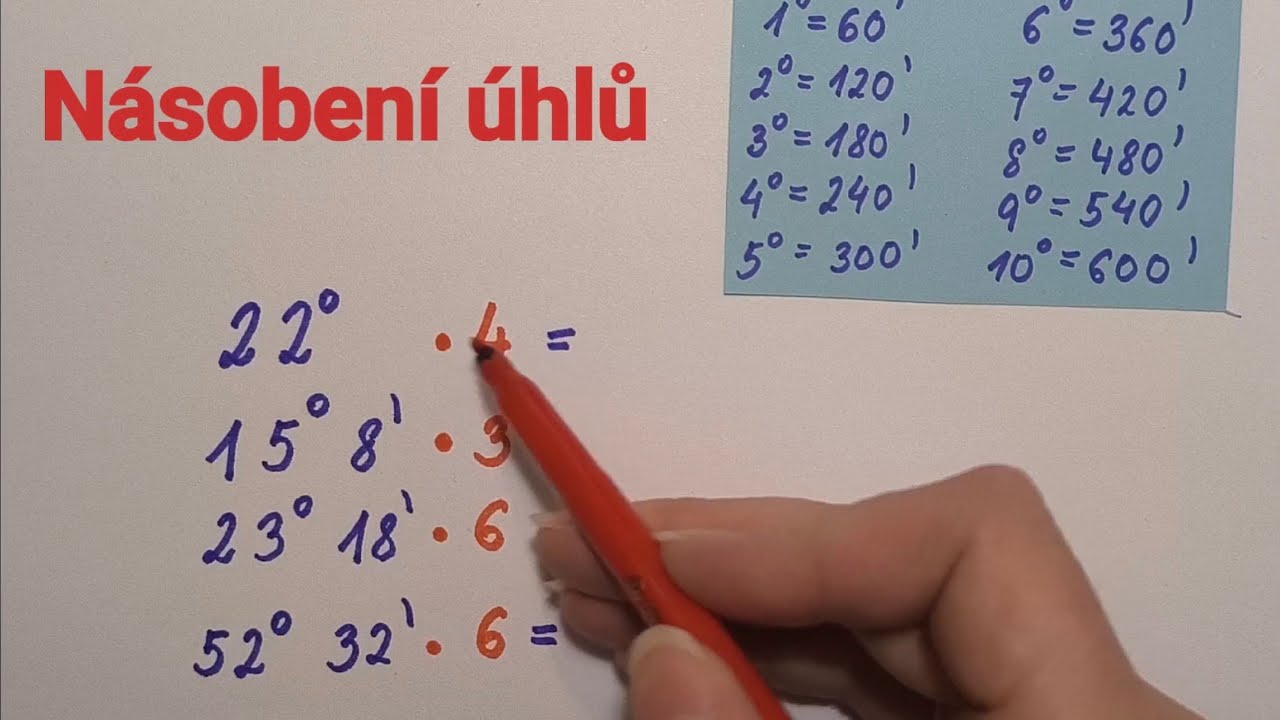 Násobení úhlů
1° = 60'
2° = 120'
3° = 180'
4° = 240'
5° = 300'
6° = 360'
7° = 420'
8° = 480'
9° = 540'
10° = 600'
22° · 4 =
15° 8' · 3
23° 18' · 6
52° 32' · 6 =